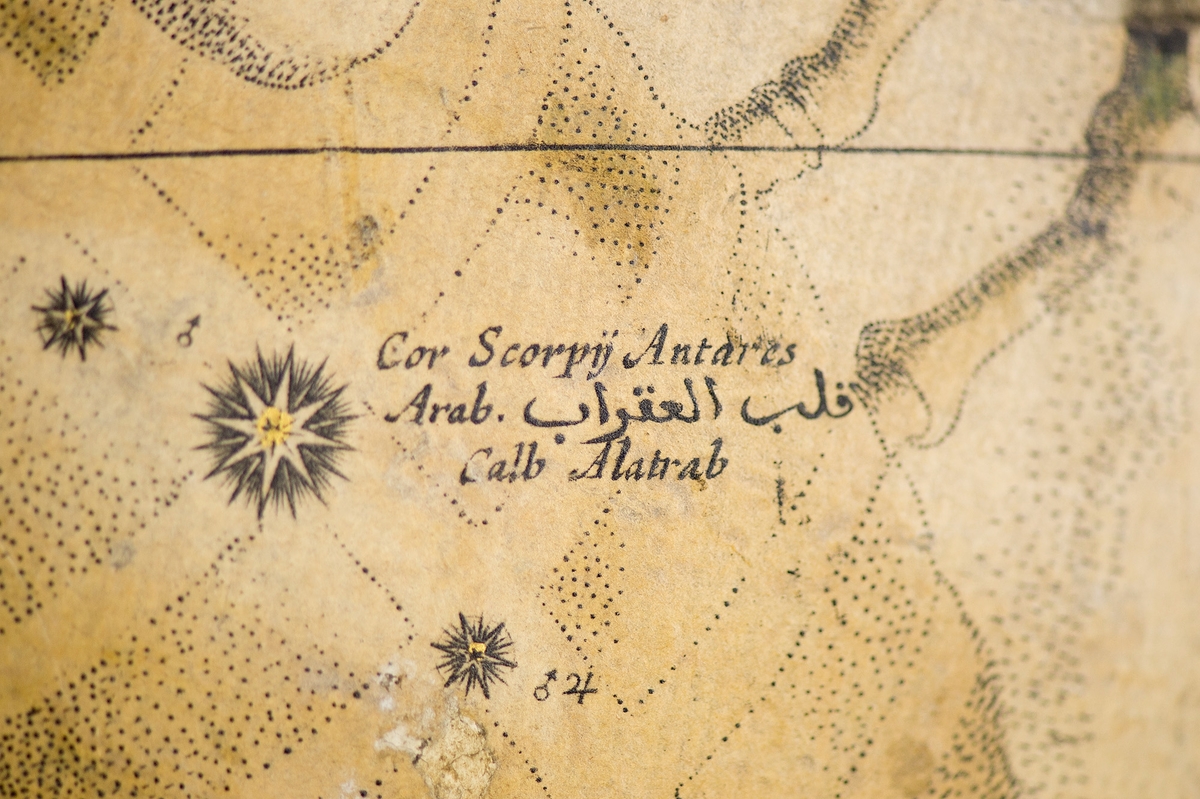 ♂
Cor Scorpij Antares
Arab. قلب العقراب
Calb Alatrab
♂ ♃